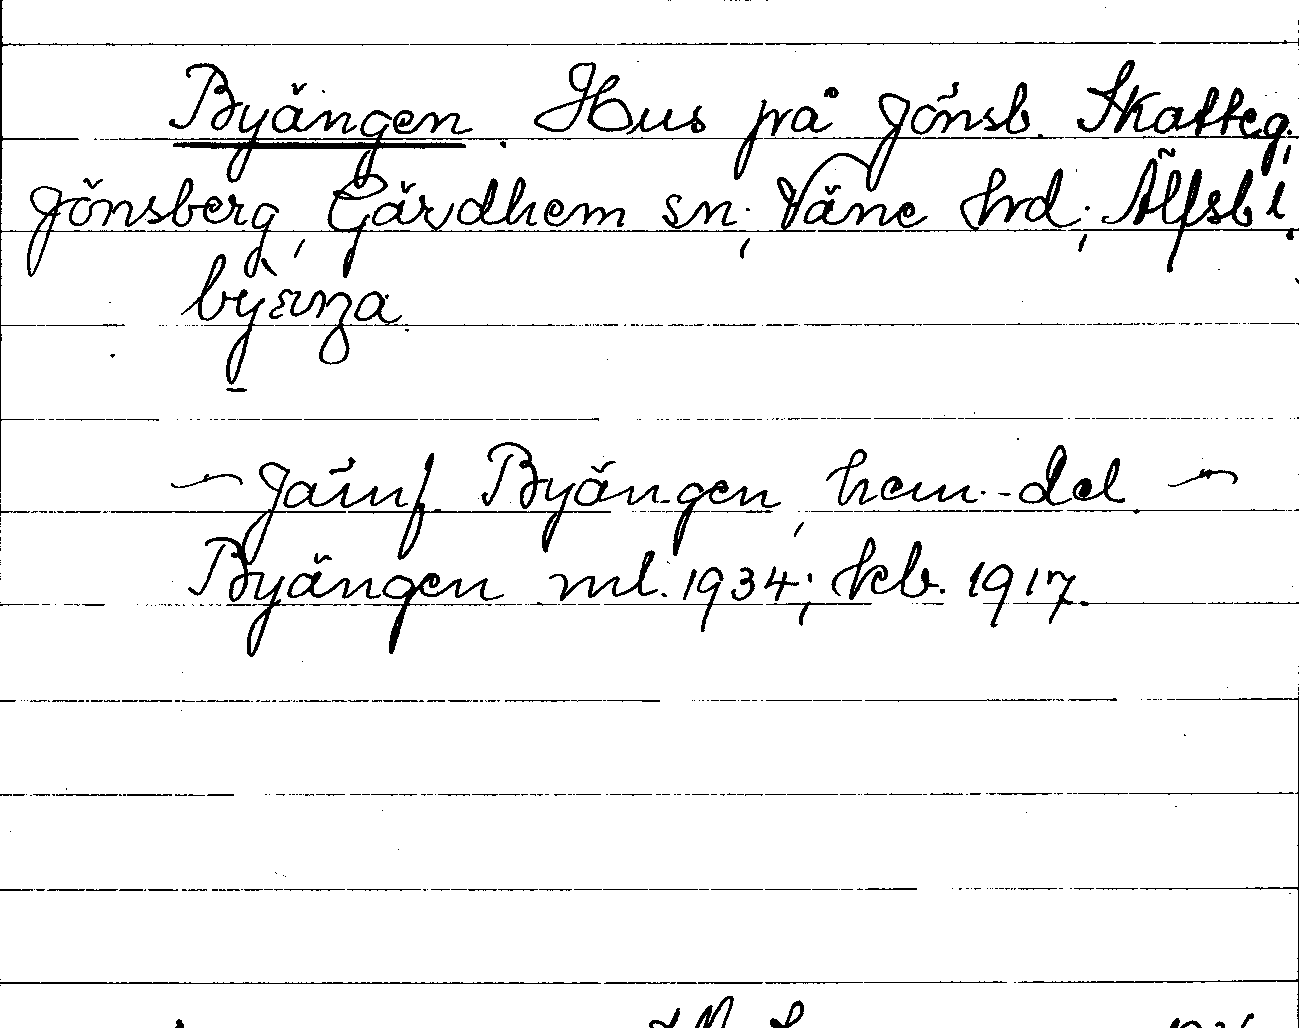 Byängen. Hus på Jönsb. Skatteg.,
Jönsberg, Gärdhem sn., Väne hrd., Älfsb l.
Jämf. Byängen, hem.-del.
Byängen ml. 1934; kb. 1917.